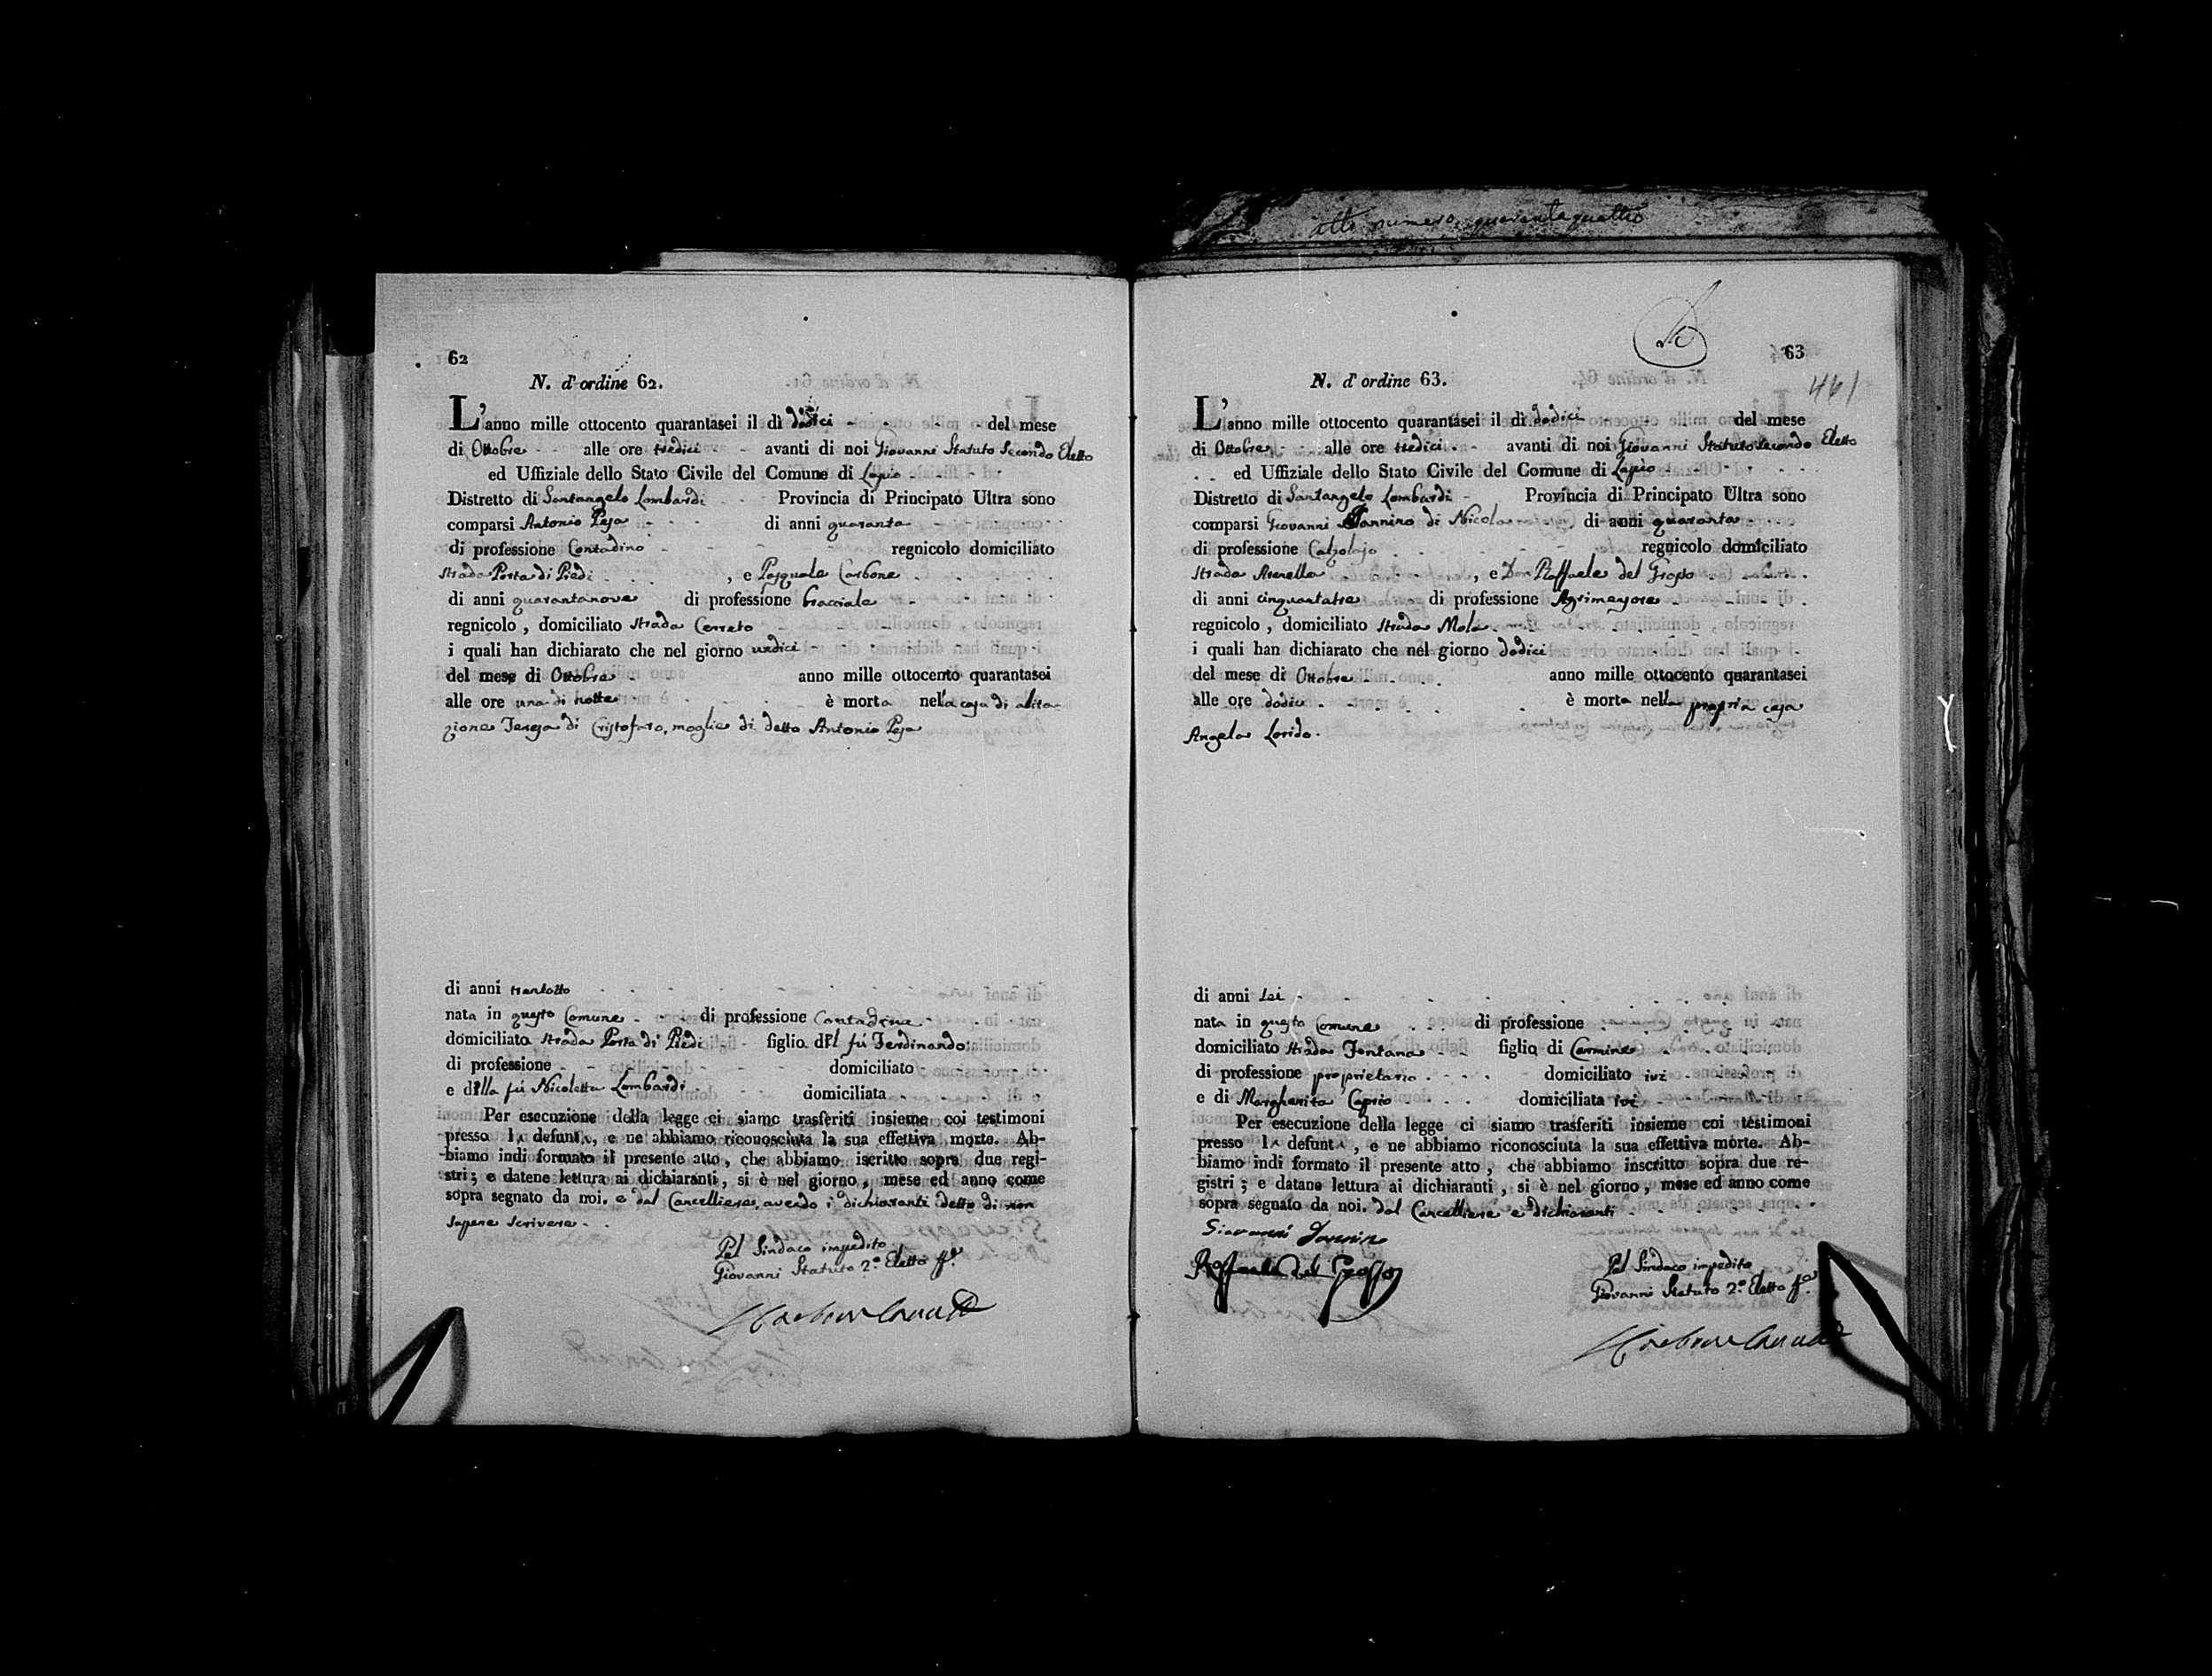 atto numero quarantaquattro
62
N. d'ordine 62.
L'anno mille ottocento quarantasei il dì dodici del mese
di Ottobre alle ore tredici avanti di noi Giovanni Statuto Secondo Eletto
ed Uffiziale dello Stato Civile del Comune di Lapio
Distretto di Santangelo Lombardi Provincia di Principato Ultra sono
comparsi Antonio Pesa di anni quaranta
di professione Contadino regnicolo domiciliato
strada Porta di Piedi, e Pasquale Carbone
di anni quarantanove di professione bracciale
regnicolo, domiciliato strada Cerreto
i quali han dichiarato che nel giorno undici
del mese di Ottobre anno mille ottocento quarantasei
alle ore una di notte è morta nella casa di abita-
zione Teresa di Cristofaro, moglie di detto Antonio Pesa
di anni trentotto
nata in questo Comune di professione Contadina
domiciliata strada Porta di Piedi figlia del fu Ferdinando
di professione domiciliato
e della fu Nicoletta Lombardi domiciliata
Per esecuzione della legge ci siamo trasferiti insieme coi testimoni
presso la defunta, e ne abbiamo riconosciuta la sua effettiva morte. Ab-
biamo indi formato il presente atto, che abbiamo iscritto sopra due regi-
stri; e datene lettura ai dichiaranti, si è nel giorno, mese ed anno come
sopra segnato da noi. e dal Cancelliere, avendo i dichiaranti detto di non
sapere scrivere.
Pel Sindaco impedito
Giovanni Statuto 2.º Eletto ff.º
63
461
N. d'ordine 63.
L'anno mille ottocento quarantasei il dì dodici del mese
di Ottobre alle ore tredici avanti di noi Giovanni Statuto Secondo Eletto
ed Uffiziale dello Stato Civile del Comune di Lapio
Distretto di Santangelo Lombardi Provincia di Principato Ultra sono
comparsi Giovanni Iannino di Nicola di anni quaranta
di professione Calzolajo regnicolo domiciliato
strada Arenella, e Don Raffaele del Grosso
di anni cinquantatre di professione Agrimensore
regnicolo, domiciliato strada Mola
i quali han dichiarato che nel giorno dodici
del mese di Ottobre anno mille ottocento quarantasei
alle ore dodici è morta nella propria casa
Angela Lorido.
di anni sei
nata in questo Comune di professione
domiciliato strada Fontana figlia di Carmine
di professione proprietario domiciliato ivi
e di Margherita Caprio domiciliata ivi
Per esecuzione della legge ci siamo trasferiti insieme coi testimoni
presso la defunta, e ne abbiamo riconosciuta la sua effettiva morte. Ab-
biamo indi formato il presente atto, che abbiamo inscritto sopra due re-
gistri; e datane lettura ai dichiaranti, si è nel giorno, mese ed anno come
sopra segnato da noi. dal Cancelliere e dichiaranti
Giovanni Iannino
Raffaele del Grosso
Pel Sindaco impedito
Giovanni Statuto 2.º Eletto ff.º